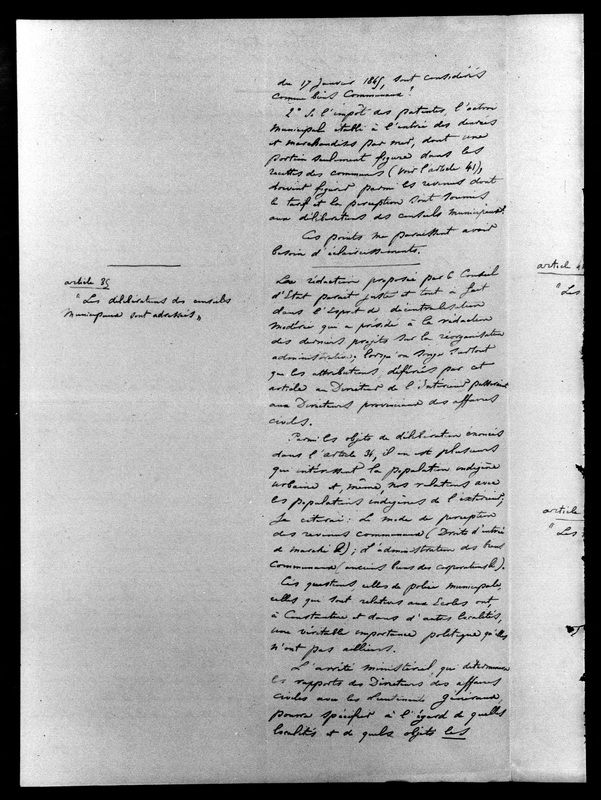 du 17 Janvier 1845, sont considérés
comme biens Communaux ?
2° Si l'impôt des patentes, l'octroi
Municipal établi à l'entrée des denrées
et marchandises par mer, dont une
portion seulement figure dans les
recettes des communes (voir l'article 41),
doivent figurer parmi les revenus dont
le tarif et la perception sont soumis
aux délibérations des conseils municipaux ?
Ces points me paraissent avoir
besoin d'éclaircissements.
article 35
"Les délibérations des conseils
Municipaux sont adressées"
La rédaction proposée par le Conseil
d'Etat parait juste et tout à fait
dans l'Esprit de décentralisation
modérée qui a présidé à la rédaction
des derniers projets sur la réorganisation
administrative; lorsqu'on songe surtout
que les attributions, déférées par cet
article au Directeur de l'Intérieur passeraient
aux Directeurs provinciaux des affaires
civiles.
Parmi les objets de délibération énoncés
dans l'article 36, il en est plusieurs
qui intéressent la population indigène
urbaine et, même, nos relations avec
les populations indigènes de l'extérieur;
Je citerai : Le mode de perception
des revenus communaux (Droits d'entrée
de marché &); L'administration des biens
Communaux (anciens biens des corporations &).
Ces questions, celles de police municipale,
celles qui sont relatives aux Ecoles ont,
à Constantine et dans d'autres localités,
une véritable importance politique qu'elles
n'ont pas ailleurs.
L'arrêté ministériel, qui déterminera
les rapports des Directeurs des affaires
Civiles avec les Lieutenants Généraux
pourra spécifier à l'égard de quelles
localités et de quels objets les
article 4
"Les
article
"Les